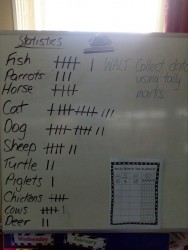 Statistics
Fish
Parrots
Horse
Cat
Dog
Sheep
Turtle
Piglets
Chickens
Cows
Deer
WALT Collect data
using tally
marks